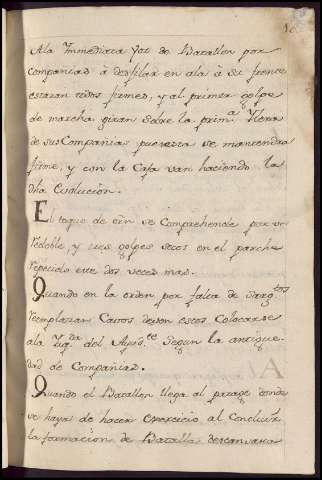 A la Immediata Voz de Batallon por
companias à desfilar en ala à su frente
estaran todos firmes, y al primer golpe
de marcha giran sobre la prim.ª Ilera
de sus Compania pues esta se mantendra
firme, y con la Caja van haciendo la
dha Evolucion.
El toque de fin se Comprehende por un
redoble, y tres golpes secos en el parche
repetido este dos veces mas.
Quando en la orden por falta de Sarg.tos
reemplazan Cavos deven estos Colocarse
a la Yzq.da del Ayud.te Segun la antigue-
dad de Companias.
Quando el Batallon llega al parage donde
se haya de hacer exercicio al Concluir
la formacion de Batalla descansara